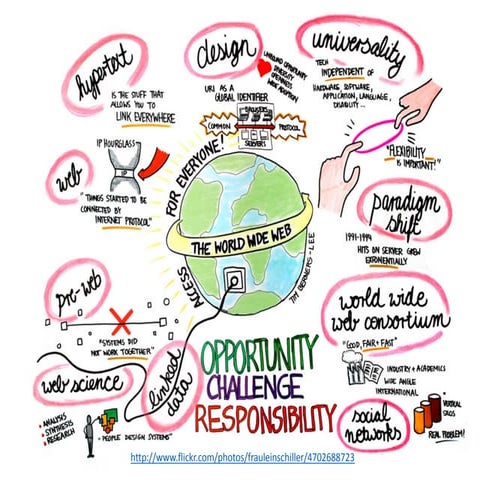 hypertext
IS THE STUFF THAT
ALLOWS YOU TO
LINK EVERYWHERE
design
UNBOUND OPPORTUNITY
DIVERSITY
OPENNESS
WIDE ADOPTION
URI AS A
GLOBAL IDENTIFIER
BROWSERS
COMMON
PROTOCOL
SERVERS
universality
TECH
INDEPENDENT OF
HARDWARE, SOFTWARE,
APPLICATION, LANGUAGE,
DISABILITY...
"FLEXIBILITY
IS IMPORTANT!"
web
IP HOURGLASS
IP
"THINGS STARTED TO BE
CONNECTED BY
INTERNET PROTOCOL"
ACCESS
FOR EVERYONE!
THE WORLD WIDE WEB
TIM BERNERS-LEE
paradigm
shift
1991-1994
HITS ON SERVER GREW
EXPONENTIALLY
pre-web
"SYSTEMS DID
NOT WORK TOGETHER"
world wide
web consortium
"GOOD, FAIR + FAST"
INDUSTRY + ACADEMICS
WIDE ANGLE
INTERNATIONAL
web science
ANALYSIS
SYNTHESIS
RESEARCH
"PEOPLE DESIGN SYSTEMS"
linked
data
OPPORTUNITY
CHALLENGE
RESPONSIBILITY
social
networks
VERTICAL
SILOS
REAL PROBLEM!
http://www.flickr.com/photos/frauleinschiller/4702688723